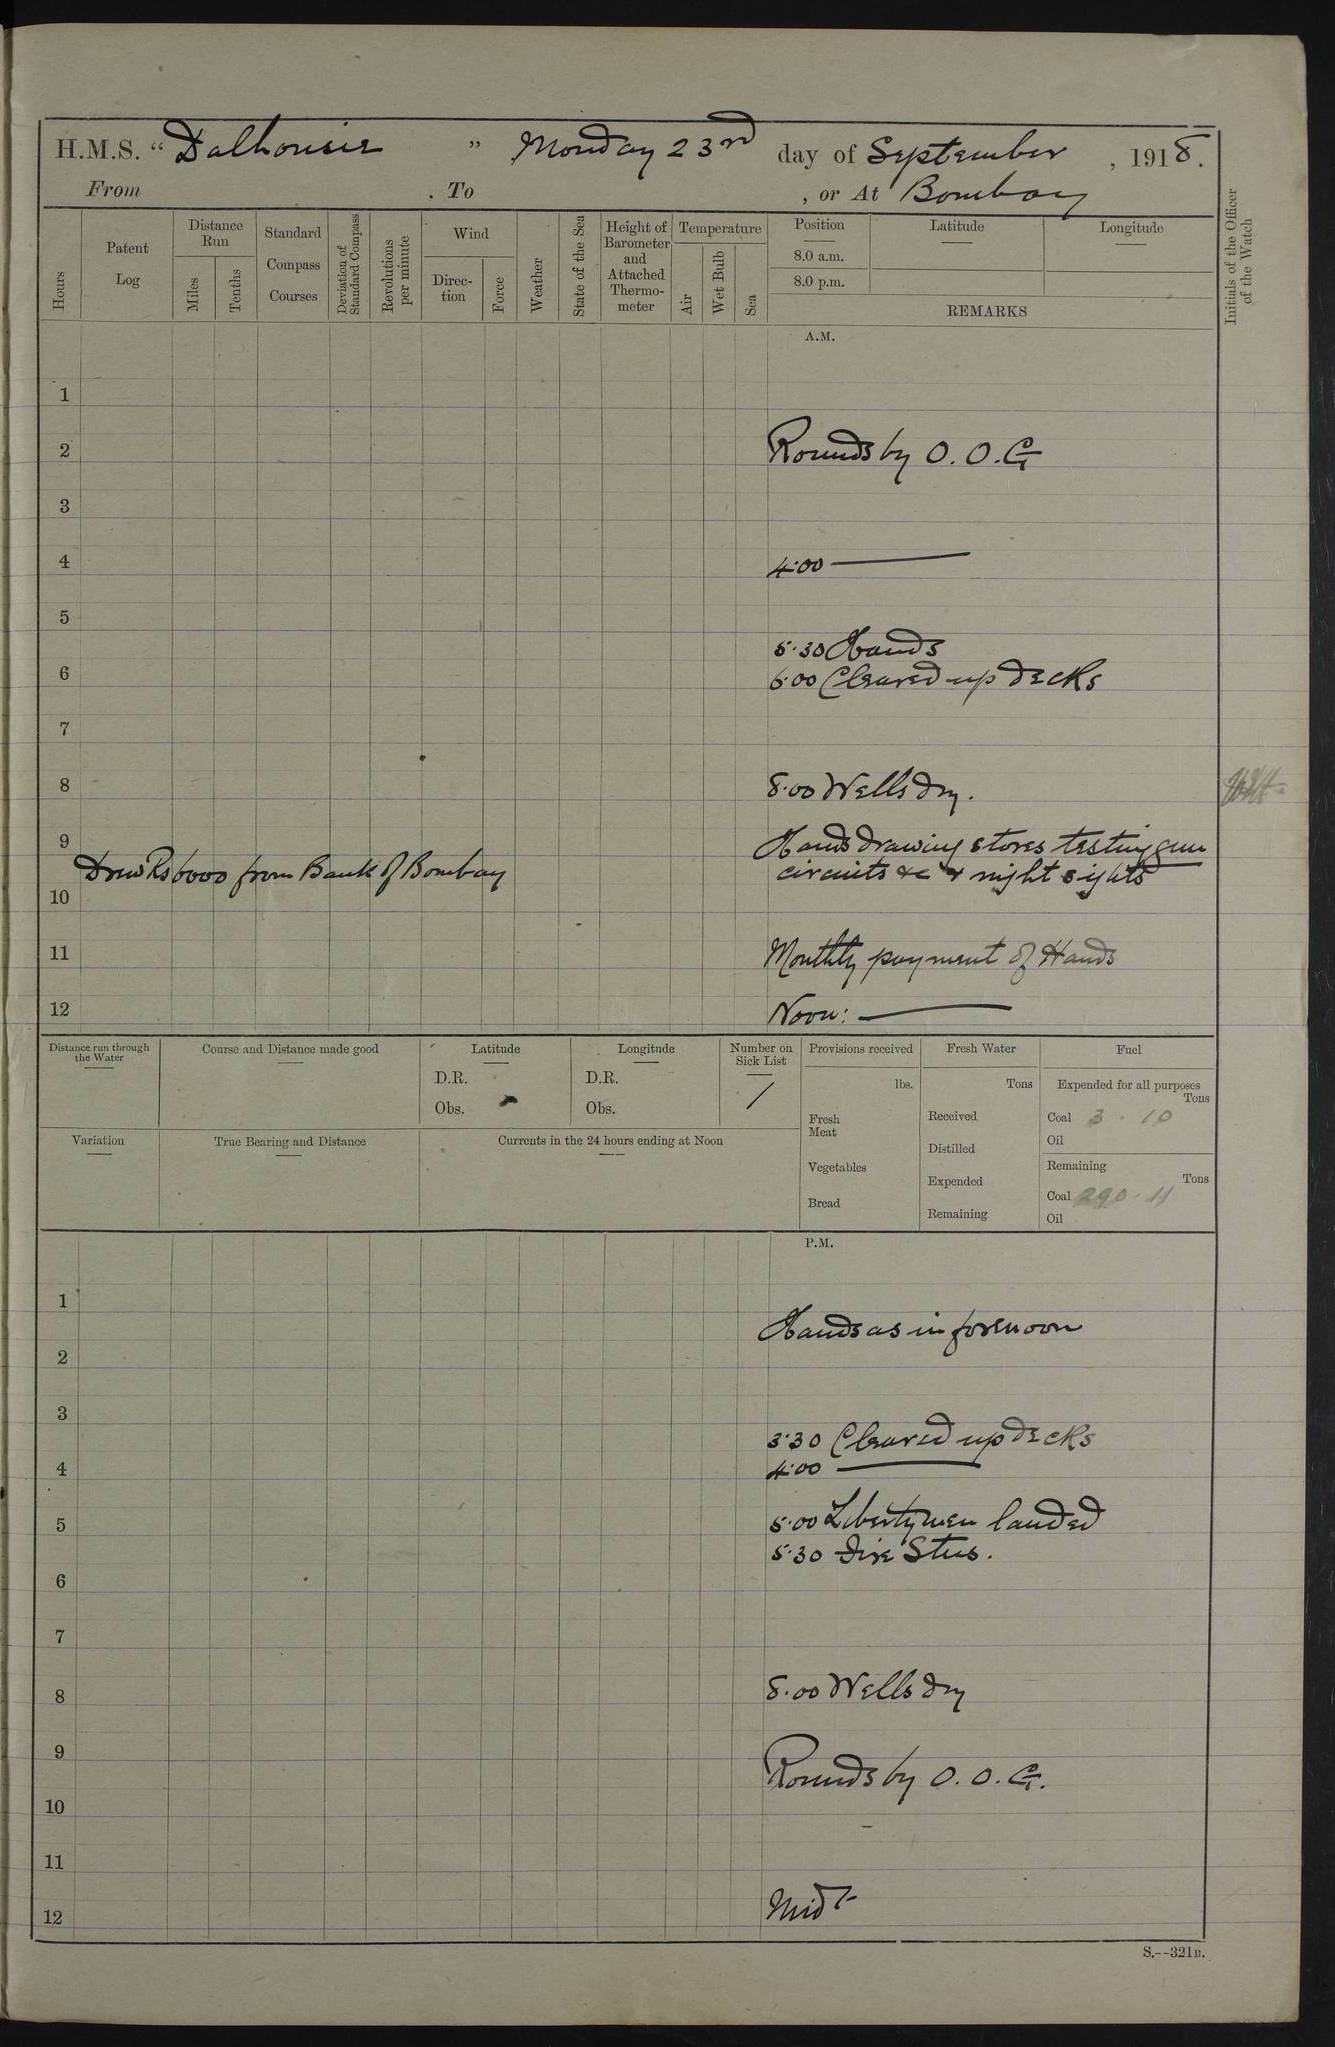 H.M.S. “ Dalhousie ” Monday 23rd day of September, 1918.
From . To , or At Bombay
Hours
Patent Log
Distance Run
Miles
Tenths
Standard Compass Courses
Deviation of Standard Compass
Revolutions per minute
Wind
Direc-tion
Force
Weather
State of the Sea
Height of Barometer and Attached Thermo-meter
Temperature
Air
Wet Bulb
Sea
Position
Latitude
Longitude
8.0 a.m.
8.0 p.m.
REMARKS
Initials of the Officer of the Watch
A.M.
1
2 Rounds by O.O.G
3
4 4.00 —
5
5.30 Hands
6 6.00 Cleared up decks
7
8 8.00 Wells dry.
9 Hands drawing stores testing gun
Drew Rs 6000 from Bank of Bombay circuits &c & night sights
10
11 Monthly payment of Hands
12 Noon: —
Distance run through the Water
Course and Distance made good
Latitude
D.R.
Obs.
Longitude
D.R.
Obs.
Number on Sick List
1
Provisions received
lbs.
Fresh Meat
Vegetables
Bread
Fresh Water
Tons
Received
Distilled
Expended
Remaining
Fuel
Expended for all purposes
Tons
Coal 3 . 10
Oil
Remaining
Tons
Coal 290 . 11
Oil
Variation
True Bearing and Distance
Currents in the 24 hours ending at Noon
P.M.
1
Hands as in forenoon
2
3
3.30 Cleared up decks
4 4.00 —
5 5.00 Liberty men landed
5.30 Fire Stns.
6
7
8 8.00 Wells dry
9
Rounds by O.O.G.
10
11
12 Midt
S.--321B.